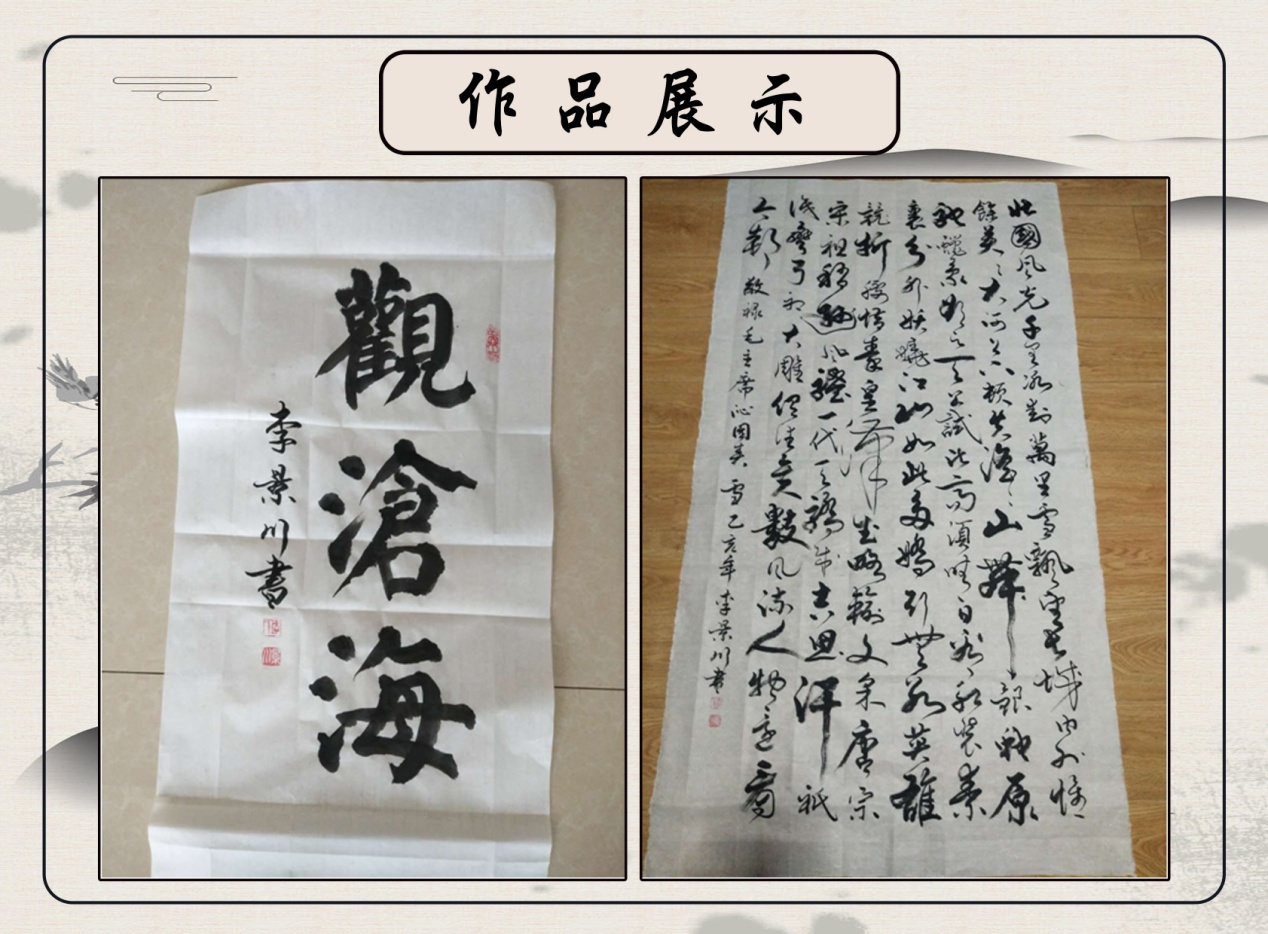 作品展示
觀滄海
李景川書
北國风光千里冰封萬里雪飘望长城内外惟
餘莽莽大河上下顿失滔滔山舞银蛇原
驰蜡象欲与天公試比高须晴日看红装素
裹分外妖娆江山如此多娇引無数英雄
竞折腰惜秦皇漢武略输文采唐宗
宋祖稍逊风骚一代天骄成吉思汗祇
识弯弓射大雕俱往矣數风流人物还看
今朝 敬禄毛主席沁园春 雪乙亥年李景川書